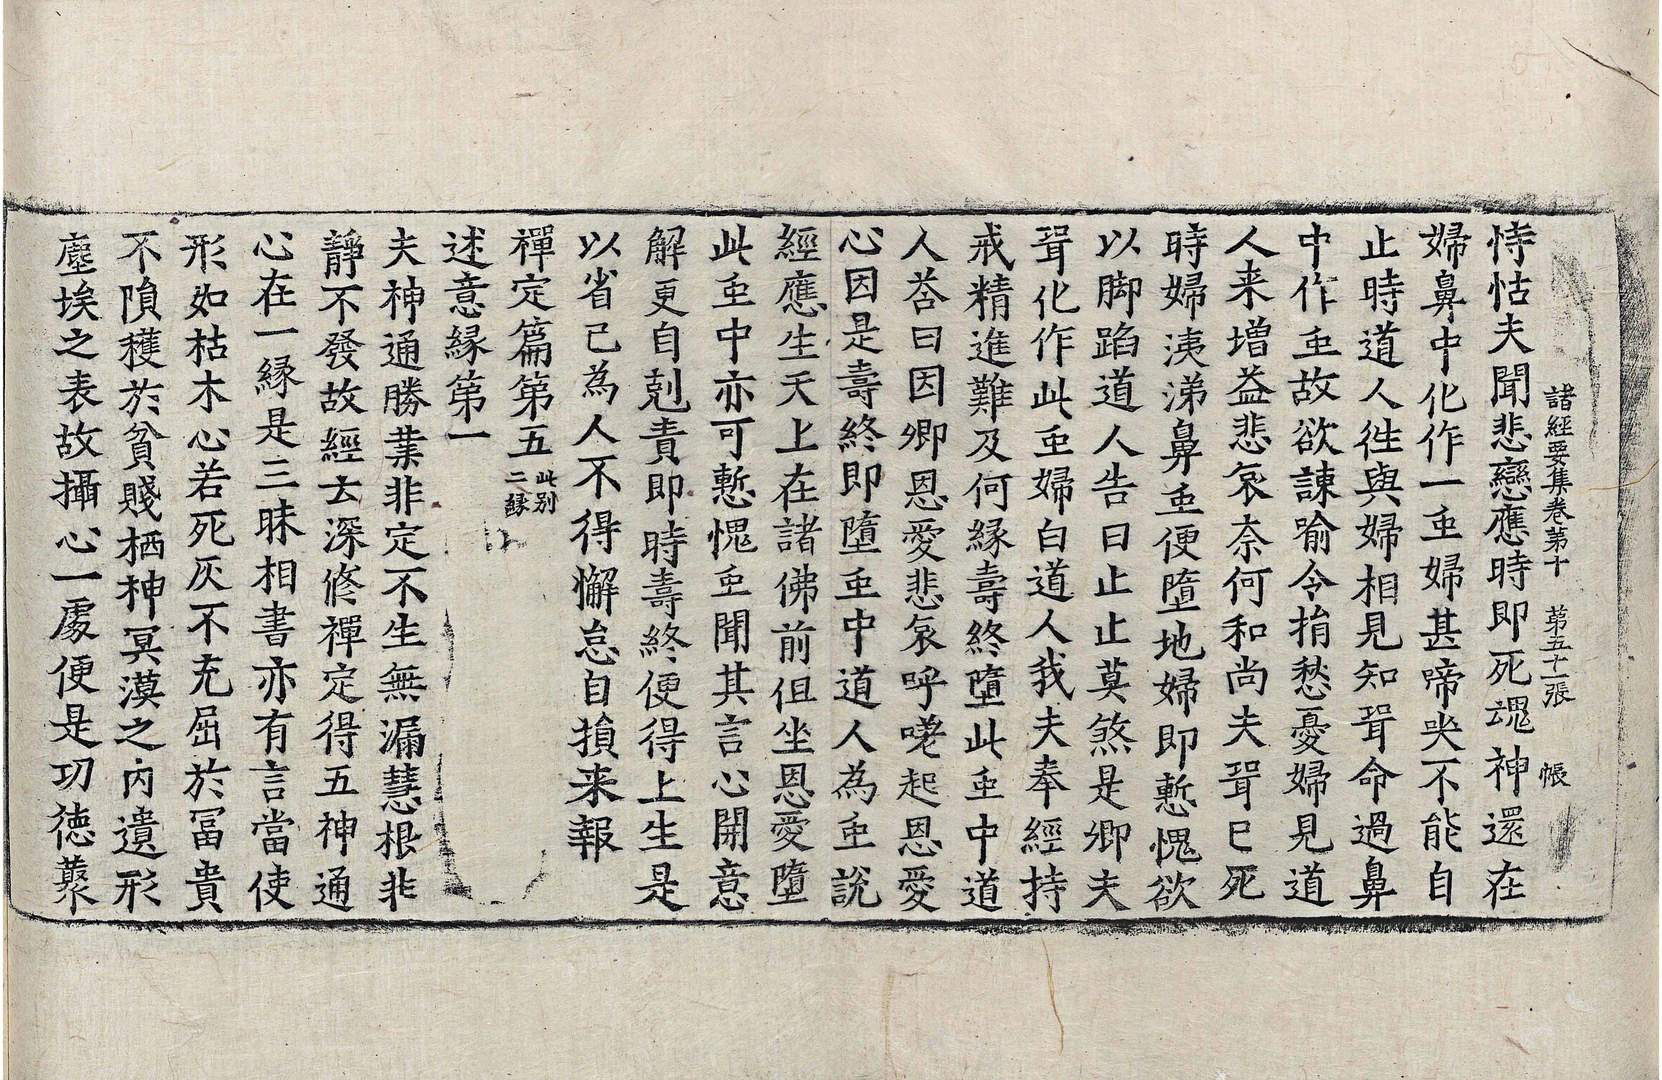 諸經要集卷第十　第五十一張　帳
恃怙夫聞悲戀應時即死魂神還在
婦鼻中化作一虫婦甚啼哭不能自
止時道人往與婦相見知聟命過鼻
中作虫故欲諫喻令捐愁憂婦見道
人来增益悲哀奈何和尚夫聟已死
時婦洟涕鼻虫便墮地婦即慙愧欲
以脚蹈道人告曰止止莫煞是卿夫
聟化作此虫婦白道人我夫奉經持
戒精進難及何縁壽終墮此虫中道
人荅曰因卿恩愛悲哀呼嘷起恩愛
心因是壽終即墮虫中道人為虫說
經應生天上在諸佛前但坐恩愛墮
此虫中亦可慙愧虫聞其言心開意
解更自剋責即時壽終便得上生是
以省已為人不得懈怠自損来報
禪定篇第五此别二縁
述意縁第一
夫神通勝業非定不生無漏慧根非
靜不發故經云深修禪定得五神通
心在一縁是三昧相書亦有言當使
形如枯木心若死灰不充屈於冨貴
不隕穫於貧賤栖神冥漠之内遺形
塵埃之表故攝心一處便是功徳藂